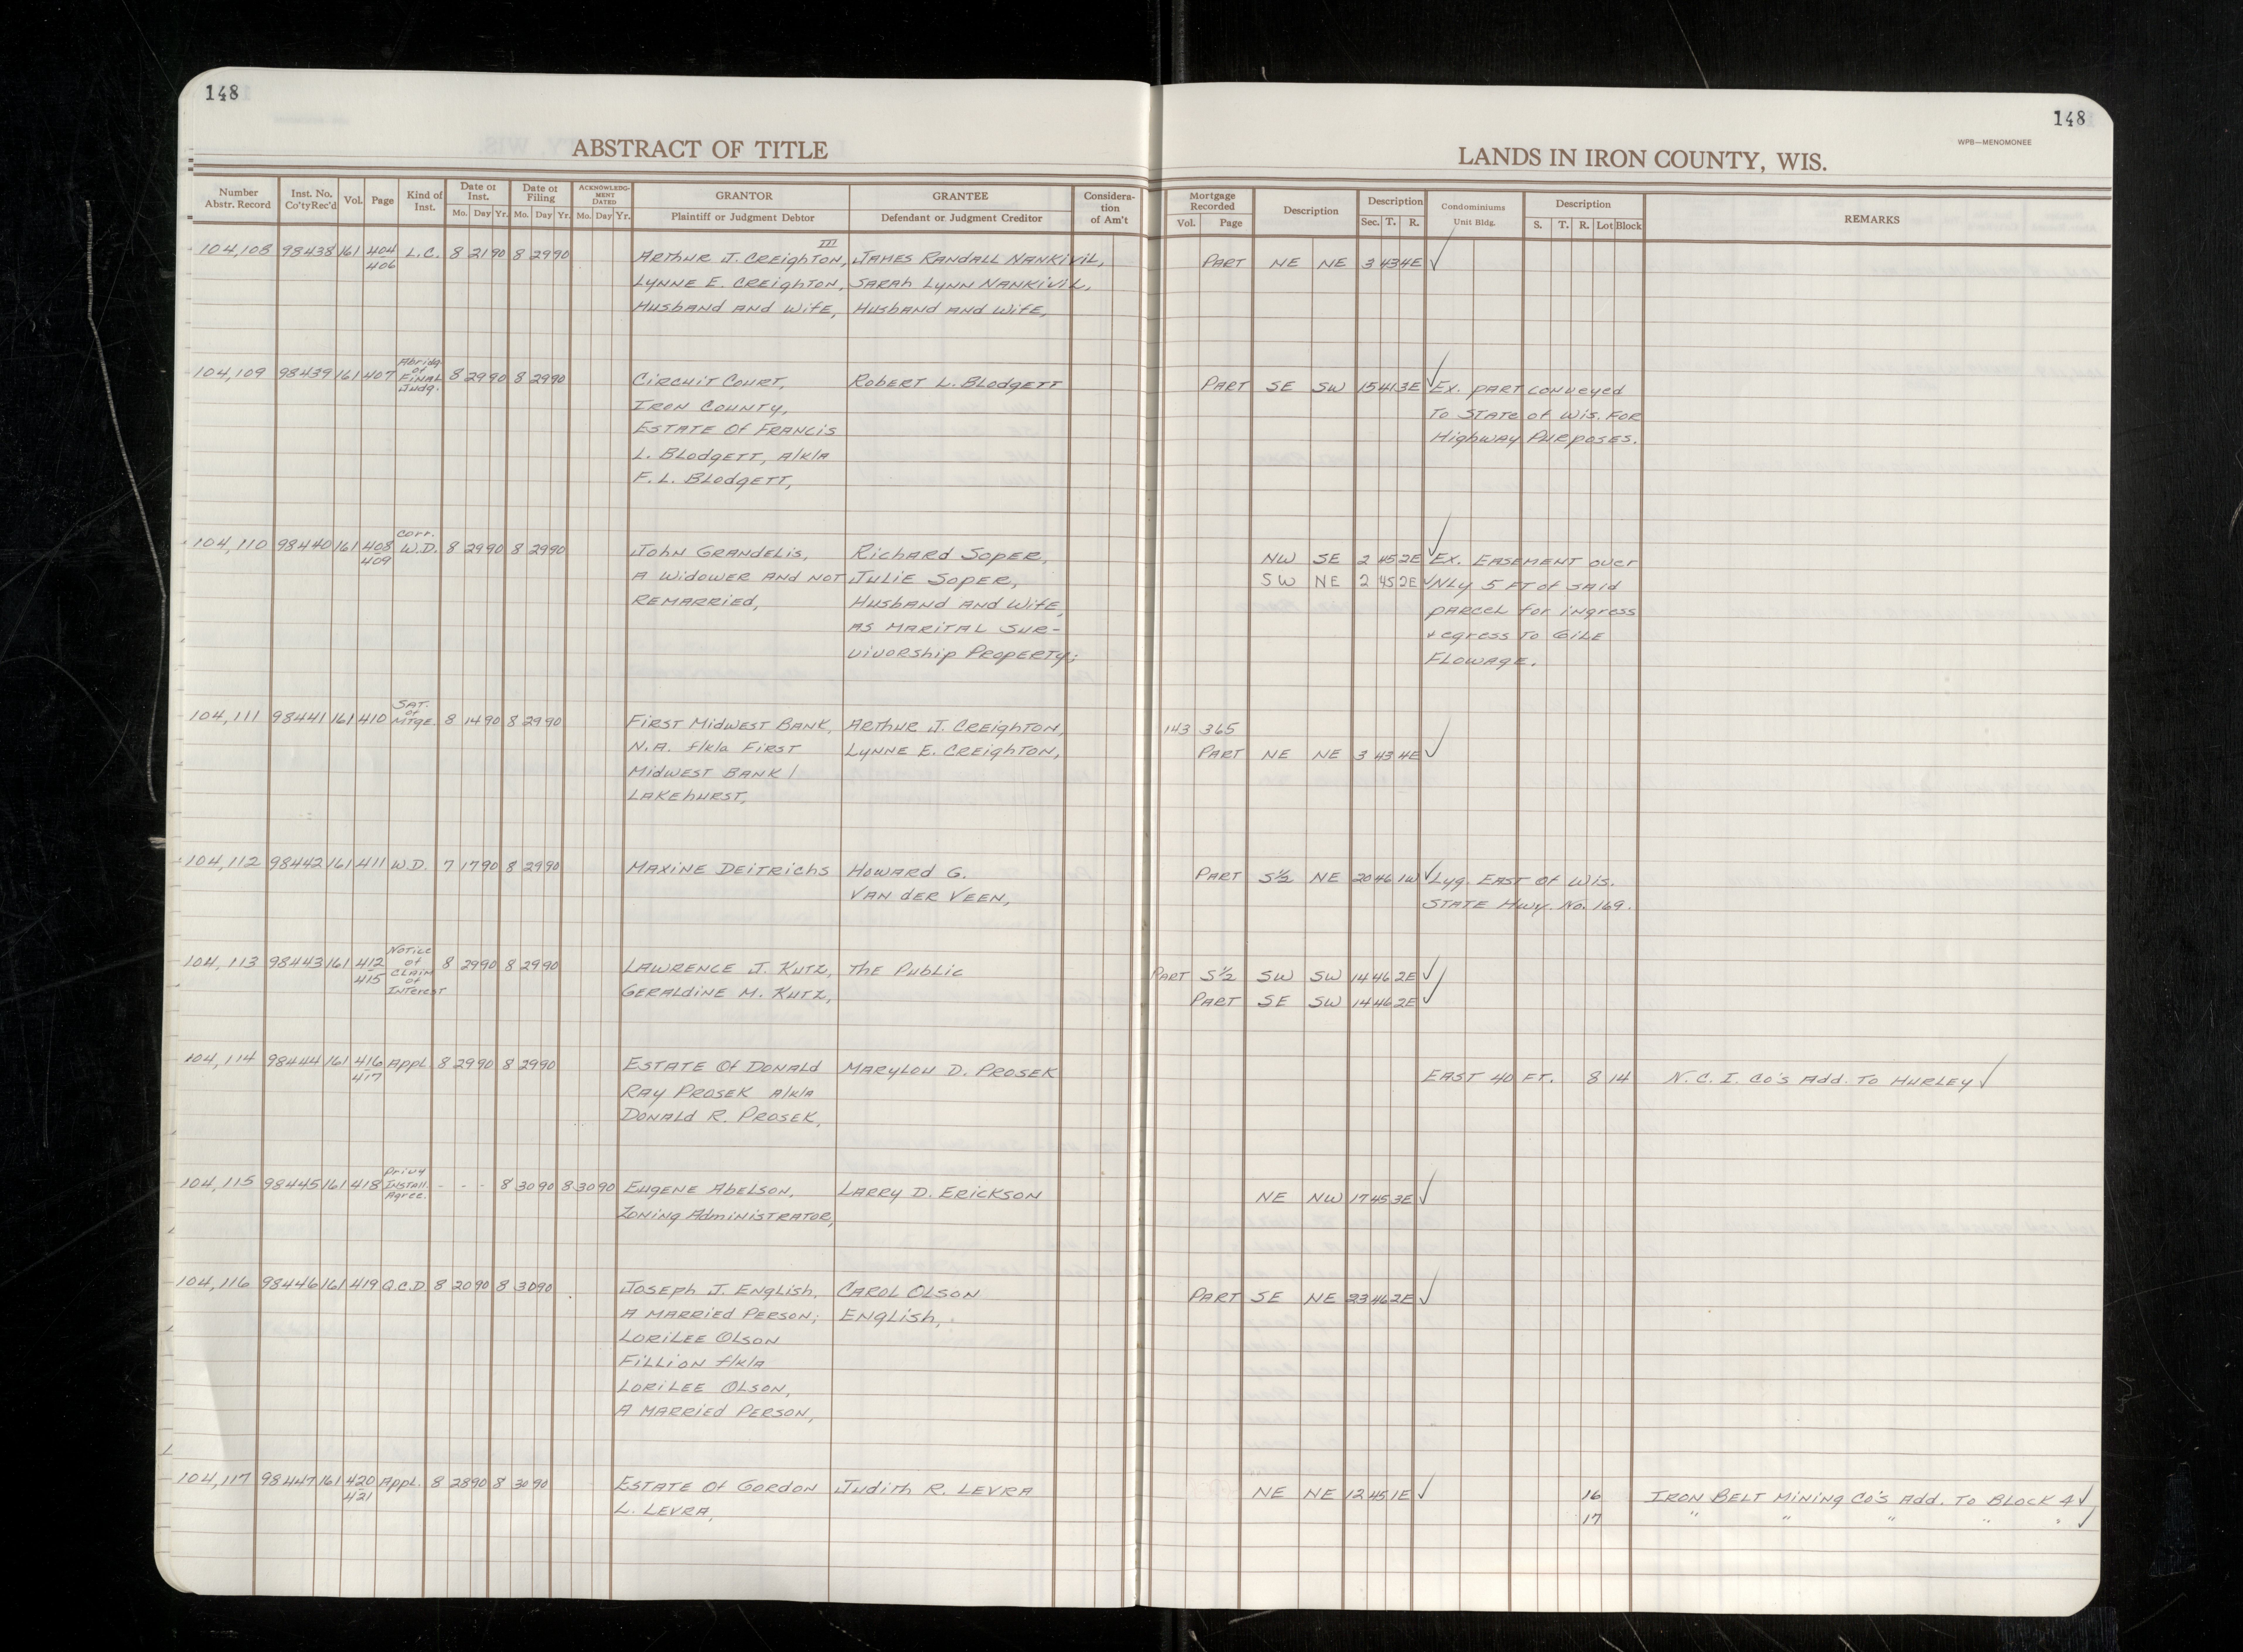 148
148
ABSTRACT OF TITLE
LANDS IN IRON COUNTY, WIS.
WPB—MENOMONEE
Number Abstr. Record Inst. No. Co'ty Rec'd Vol. Page Kind of Inst. Date of Inst. Mo. Day Yr. Date of Filing Mo. Day Yr. ACKNOWLEDGMENT DATED Mo. Day Yr. GRANTOR Plaintiff or Judgment Debtor GRANTEE Defendant or Judgment Creditor Consideration of Am't Mortgage Recorded Vol. Page Description Description Sec. T. R. Condominiums Unit Bldg. Description S. T. R. Lot Block REMARKS
III
104,108 98438 161 404 L.C. 8 21 90 8 29 90 Arthur J. Creighton, James Randall Nankivil, Part NE NE 3 43 4E ✓
406 Lynne E. Creighton, Sarah Lynn Nankivil,
Husband and Wife, Husband and Wife,
Abridg. of Final Judg.
104,109 98439 161 407 8 29 90 8 29 90 Circuit Court, Robert L. Blodgett Part SE SW 15 41 3E ✓ Ex. part conveyed
Iron County, to State of Wis. for
Estate of Francis Highway Purposes.
L. Blodgett, a/k/a
F. L. Blodgett,
Corr.
104,110 98440 161 408 W.D. 8 29 90 8 29 90 John Grandelis, Richard Soper, NW SE 2 45 2E ✓ Ex. Easement over
409 a widower and not Julie Soper, SW NE 2 45 2E ✓ Nly 5 ft of said
remarried, Husband and Wife, parcel for ingress
as marital sur- + egress to Gile
vivorship Property; Flowage.
Sat. of Mtge.
104,111 98441 161 410 8 14 90 8 29 90 First Midwest Bank, Arthur J. Creighton, 143 365
N.A. f/k/a First Lynne E. Creighton, Part NE NE 3 43 4E ✓
Midwest Bank/
Lakehurst,
104,112 98442 161 411 W.D. 7 17 90 8 29 90 Maxine Deitrichs Howard G. Part S½ NE 20 46 1W ✓ Lyg. East of Wis.
Van der Veen, State Hwy. No. 169.
Notice of Claim of Interest
104,113 98443 161 412 8 29 90 8 29 90 Lawrence J. Kutz, The Public Part S½ SW SW 14 46 2E ✓
415 Geraldine M. Kutz, Part SE SW 14 46 2E ✓
104,114 98444 161 416 Appl. 8 29 90 8 29 90 Estate of Donald Marylou D. Prosek East 40 Ft. 8 14 N.C.I. Co's Add. to Hurley ✓
417 Ray Prosek a/k/a
Donald R. Prosek,
Privy Install. Agree.
104,115 98445 161 418 - - - 8 30 90 8 30 90 Eugene Abelson, Larry D. Erickson NE NW 17 45 3E ✓
Zoning Administrator,
104,116 98446 161 419 Q.C.D. 8 20 90 8 30 90 Joseph J. English, Carol Olson Part SE NE 23 46 2E ✓
a married person; English,
Lorilee Olson
Fillion f/k/a
Lorilee Olson,
a married person,
104,117 98447 161 420 Appl. 8 28 90 8 30 90 Estate of Gordon Judith R. Levra NE NE 12 45 1E ✓ 16 Iron Belt Mining Co's Add. to Block 4 ✓
421 L. Levra, 17 " " " " " ✓